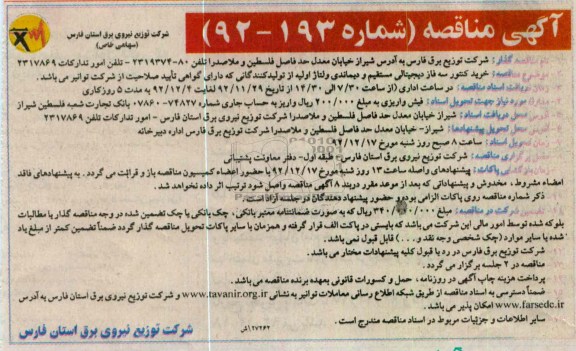 آگهی مناقصه (شماره ۱۹۳-۹۲)
شرکت توزیع نیروی برق استان فارس
(سهامی خاص)
نام مناقصه گذار: شرکت توزیع برق فارس به آدرس شیراز خیابان معدل حد فاصل فلسطین و ملاصدرا تلفن ۸۰-۲۳۱۹۳۷۴ - تلفن امور تدارکات ۲۳۱۷۸۶۹
موضوع مناقصه: خرید کنتور سه فاز دیجیتالی مستقیم و دیماندی ولتاژ اولیه از تولیدکنندگانی که دارای گواهی تأیید صلاحیت از شرکت توانیر می باشد.
زمان دریافت اسناد مناقصه: در ساعت اداری (از ساعت ۷/۳۰ الی ۱۴/۳۰) از تاریخ ۹۲/۱۱/۲۹ لغایت ۹۲/۱۲/۴ به مدت ۵ روزکاری
مدارک مورد نیاز جهت تحویل اسناد: فیش واریزی به مبلغ ۲۰۰/۰۰۰ ریال واریز به حساب جاری شماره ۷۴۸۲۷-۰۷۸۶۰ بانک تجارت شعبه فلسطین شیراز
آدرس محل دریافت اسناد: شیراز خیابان معدل حد فاصل فلسطین و ملاصدرا شرکت توزیع نیروی برق استان فارس - امور تدارکات تلفن ۲۳۱۷۸۶۹
آدرس محل تحویل پیشنهادها: شیراز- خیابان معدل حد فاصل فلسطین و ملاصدرا شرکت توزیع برق فارس اداره دبیرخانه
زمان تحویل اسناد: ساعت ۸ صبح روز شنبه مورخ ۹۲/۱۲/۱۷
محل برگزاری مناقصه: شرکت توزیع نیروی برق استان فارس - طبقه اول- دفتر معاونت پشتیبانی
زمان بازگشایی پاکات: پیشنهادهای واصله ساعت ۱۳ روز شنبه مورخ ۹۲/۱۲/۱۷ با حضور اعضاء کمیسیون مناقصه باز و قرائت می گردد. به پیشنهادهای فاقد
امضاء مشروط، مخدوش و پیشنهاداتی که بعد از موعد مقرر دربند ۸ آگهی مناقصه واصل شود ترتیب اثر داده نخواهد شد.
ذکر شماره مناقصه روی پاکات الزامی بوده و حضور پیشنهاد دهندگان در جلسه آزاد است.
تضمین شرکت در مناقصه: مبلغ ۳۴۰/۰۰۰/۰۰۰ ریال که به صورت ضمانتنامه معتبر بانکی، چک بانکی یا چک تضمین شده در وجه مناقصه گذار یا مطالبات
بلوکه شده توسط امور مالی این شرکت می باشد که بایستی در پاکت الف قرار گرفته و همزمان با سایر پاکات تحویل مناقصه گذار گردد ضمناً تضمین کمتر از مبلغ یاد
شده یا سایر موارد (چک شخصی وجه نقد و...) قابل قبول نمی باشد.
شرکت توزیع برق فارس در رد یا قبول کلیه پیشنهادات مختار می باشد.
مناقصه در ۲ جلسه برگزار می گردد.
پرداخت هزینه چاپ آگهی در روزنامه، حمل و کسورات قانونی بعهده برنده مناقصه می باشد.
ضمناً دسترسی به اسناد مناقصه از طریق شبکه اطلاع رسانی معاملات توانیر به نشانی www.tavanir.org.ir و شرکت توزیع نیروی برق استان فارس به آدرس
www.farsedc.ir امکان پذیر می باشد.
سایر اطلاعات و جزئیات مربوط در اسناد مناقصه مندرج است.
شرکت توزیع نیروی برق استان فارس